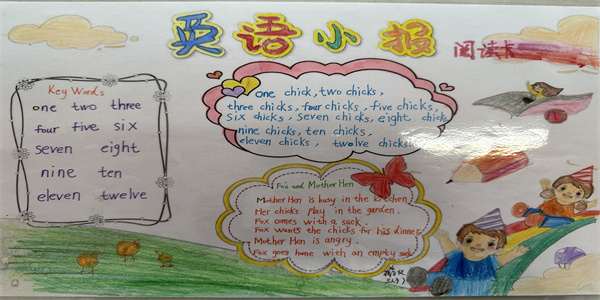 英语小报
阅读卡
Key Words
one two three
four five six
seven eight
nine ten
eleven twelve
one chick, two chicks,
three chicks, four chicks, five chicks,
six chicks, seven chicks, eight chicks
nine chicks, ten chicks,
eleven chicks, twelve chicks.
Fox and Mother Hen
Mother Hen is busy in the kitchen.
Her chicks play in the garden.
Fox comes with a sack.
Fox wants the chicks for his dinner.
Mother Hen is angry.
Fox goes home with an empty sack.